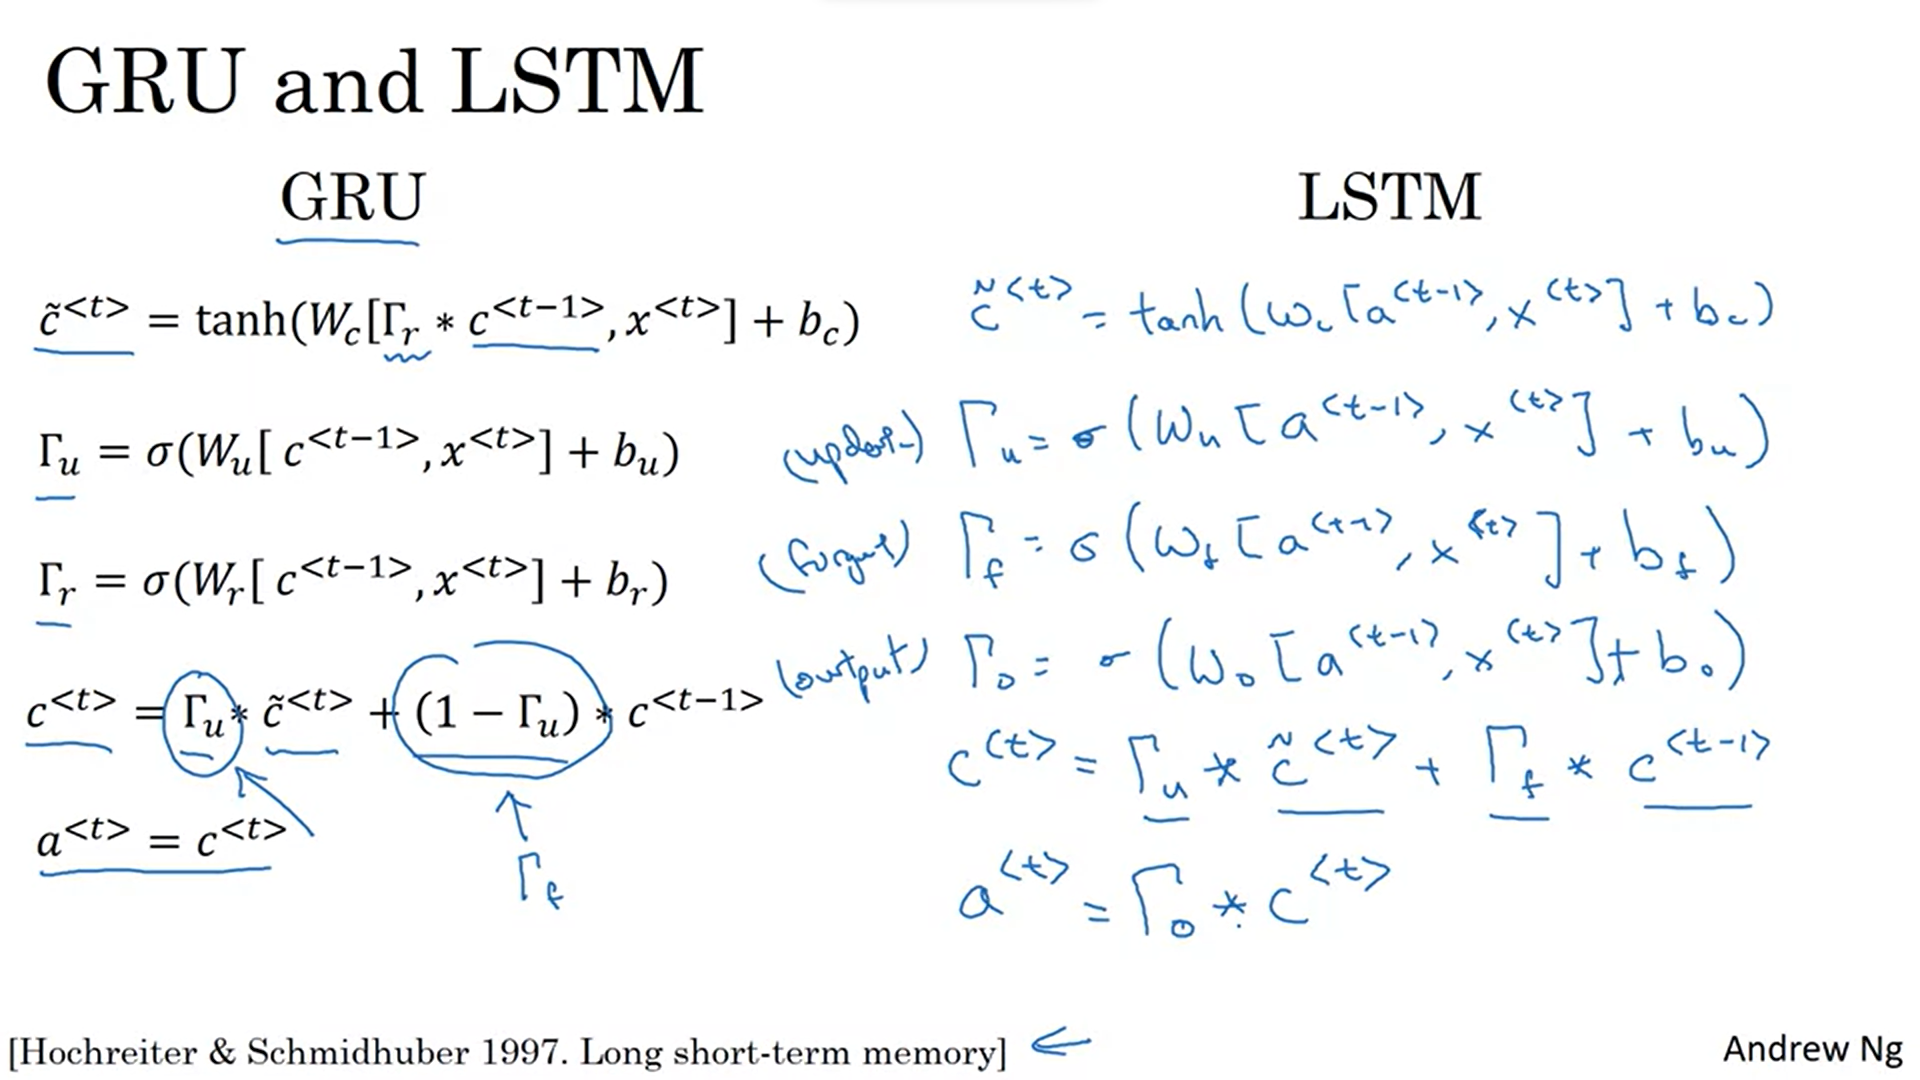 GRU and LSTM
GRU
c̃<t> = tanh(Wc[Γr * c<t−1>, x<t>] + bc)
Γu = σ(Wu[ c<t−1>, x<t>] + bu)
Γr = σ(Wr[ c<t−1>, x<t>] + br)
c<t> = Γu * c̃<t> + (1 − Γu) * c<t−1>
a<t> = c<t>
Γf
LSTM
c̃<t> = tanh(Wc[a<t-1>, x<t>] + bc)
(update) Γu = σ(Wu[a<t-1>, x<t>] + bu)
(forget) Γf = σ(Wf[a<t-1>, x<t>] + bf)
(output) Γo = σ(Wo[a<t-1>, x<t>] + bo)
c<t> = Γu * c̃<t> + Γf * c<t-1>
a<t> = Γo * c<t>
[Hochreiter & Schmidhuber 1997. Long short-term memory] ←
Andrew Ng